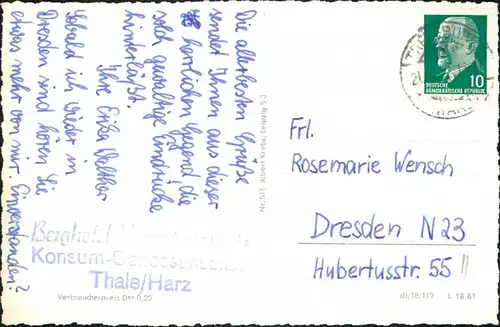 Die allerbesten Grüße
sendet Ihnen aus dieser
herrlichen Gegend, die
solch gewaltige Eindrücke
hinterläßt.
Ihre Erika Walther
Sobald ich wieder in
Dresden sind hören Sie
etwas mehr von mir. Einverstanden?
Berghotel
Konsum-Genossenschaft
Thale/Harz
Verbraucherpreis DM 0,20
Nr. 511 Albert Krebs, Leipzig S 3
10
DEUTSCHE
DEMOKRATISCHE REPUBLIK
Frl.
Rosemarie Wensch
Dresden N 23
Hubertusstr. 55 II
III/18/117 L 18.61